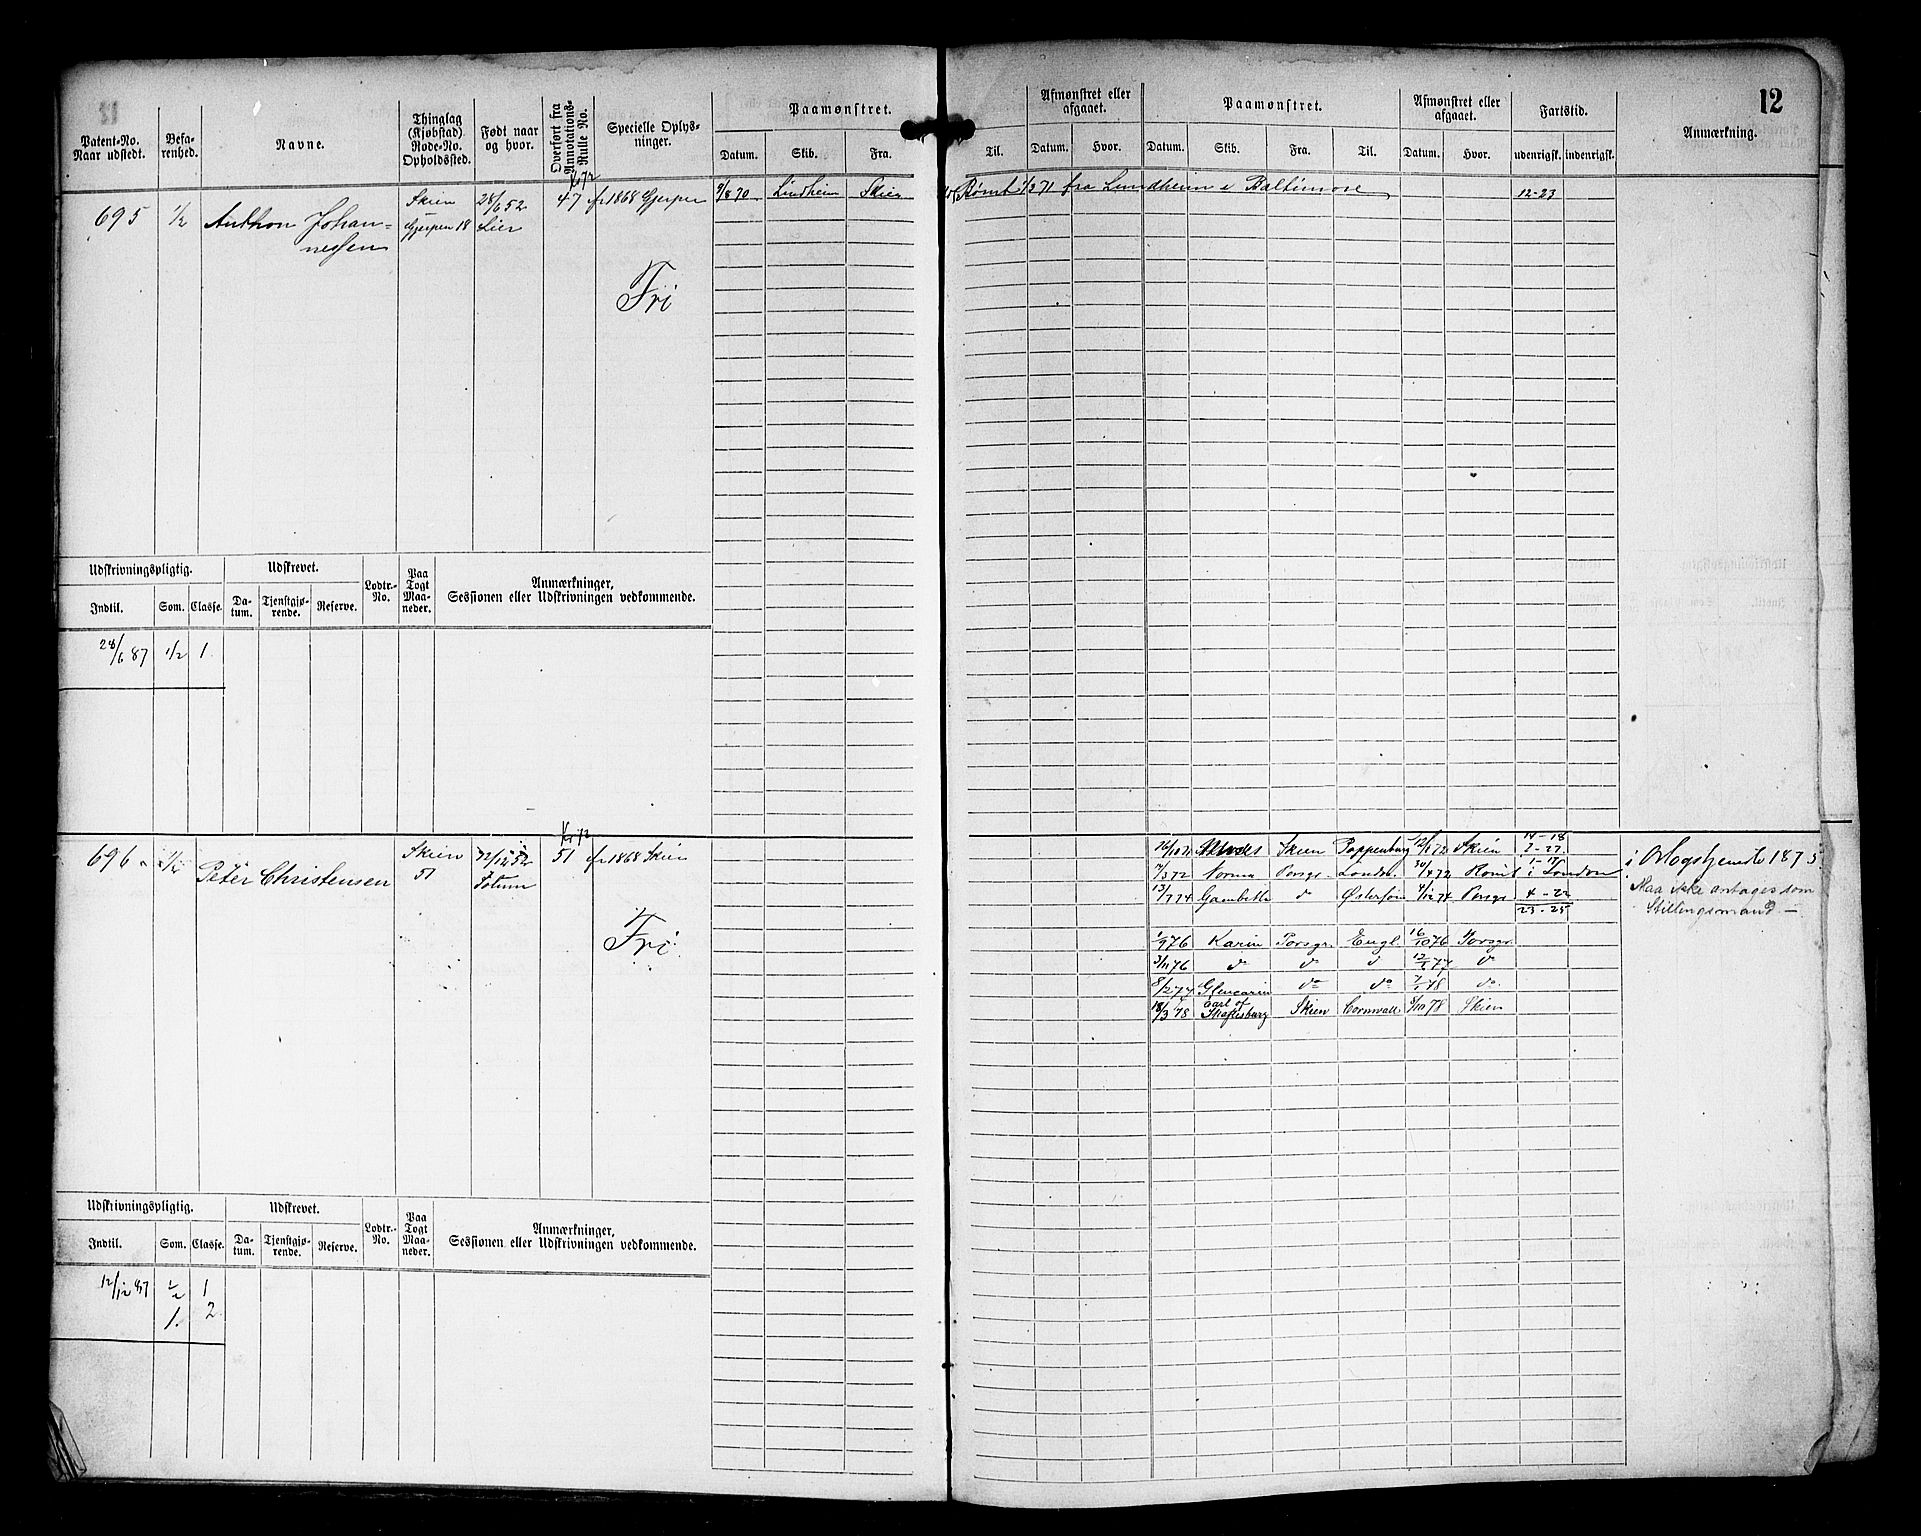 12
Patent-No. Naar udstedt.
Befarenhed.
Navne.
Thinglag (Kjøbstad) Rode-No. Opholdssted.
Født naar og hvor.
Overført fra Annotations-Rulle No.
Specielle Oplysninger.
Paamønstret.
Datum. Skib. Fra. Til.
Afmønstret eller afgaaet.
Datum. Hvor.
Paamønstret.
Datum. Skib. Fra. Til.
Afmønstret eller afgaaet.
Datum. Hvor.
Fartstid.
udenrigsk. indenrigsk.
Anmærkning.
695 1/2 Anthon Johan=
nessen
Skien
Gjerpen 18
28/6 52
Lier
47 fr 1868 Gjerpen
Fri
9/8 70 Lindheim Skien
Rømt 1/2 71 fra Lundheim i Baltimore 12-23
Udskrivningspligtig. Udskrevet. Lodtr.-No. Paa Togt Maaneder. Anmærkninger, Sessionen eller Udskrivningen vedkommende.
Indtil. Som. Classe. Datum. Tjenstgjørende. Reserve.
28/6 87 1/2 1.
696 1/2 Peter Christensen
Skien
51
12/12 52
51 fr 1868 Skien
Fri
14-18
Skien Pappenburg 12/1 72 Skien 2-27
7/3 72 Norma Porsgr. London 30/4 72 Rømt i London
1-17
13/7 74 Gambetta d Østersøn 4/12 74 Porsgr 4-22
23-25
1/9 76 Karin Porsgr. Engl. 16/10 76 Porsgr.
3/11 76 do do d do
8/2 77 Glencairn do do 7/1 78 do.
18/3 78 Earl of Shaftesbury Skien Cornwall 9/10 78 Skien
i Orlogstjeneste 1875
Maa ikke antages som
Stillingsmand —
Udskrivningspligtig. Udskrevet. Lodtr.-No. Paa Togt Maaneder. Anmærkninger, Sessionen eller Udskrivningen vedkommende.
Indtil. Som. Classe. Datum. Tjenstgjørende. Reserve.
12/12 87 1/2 1
1. 2.